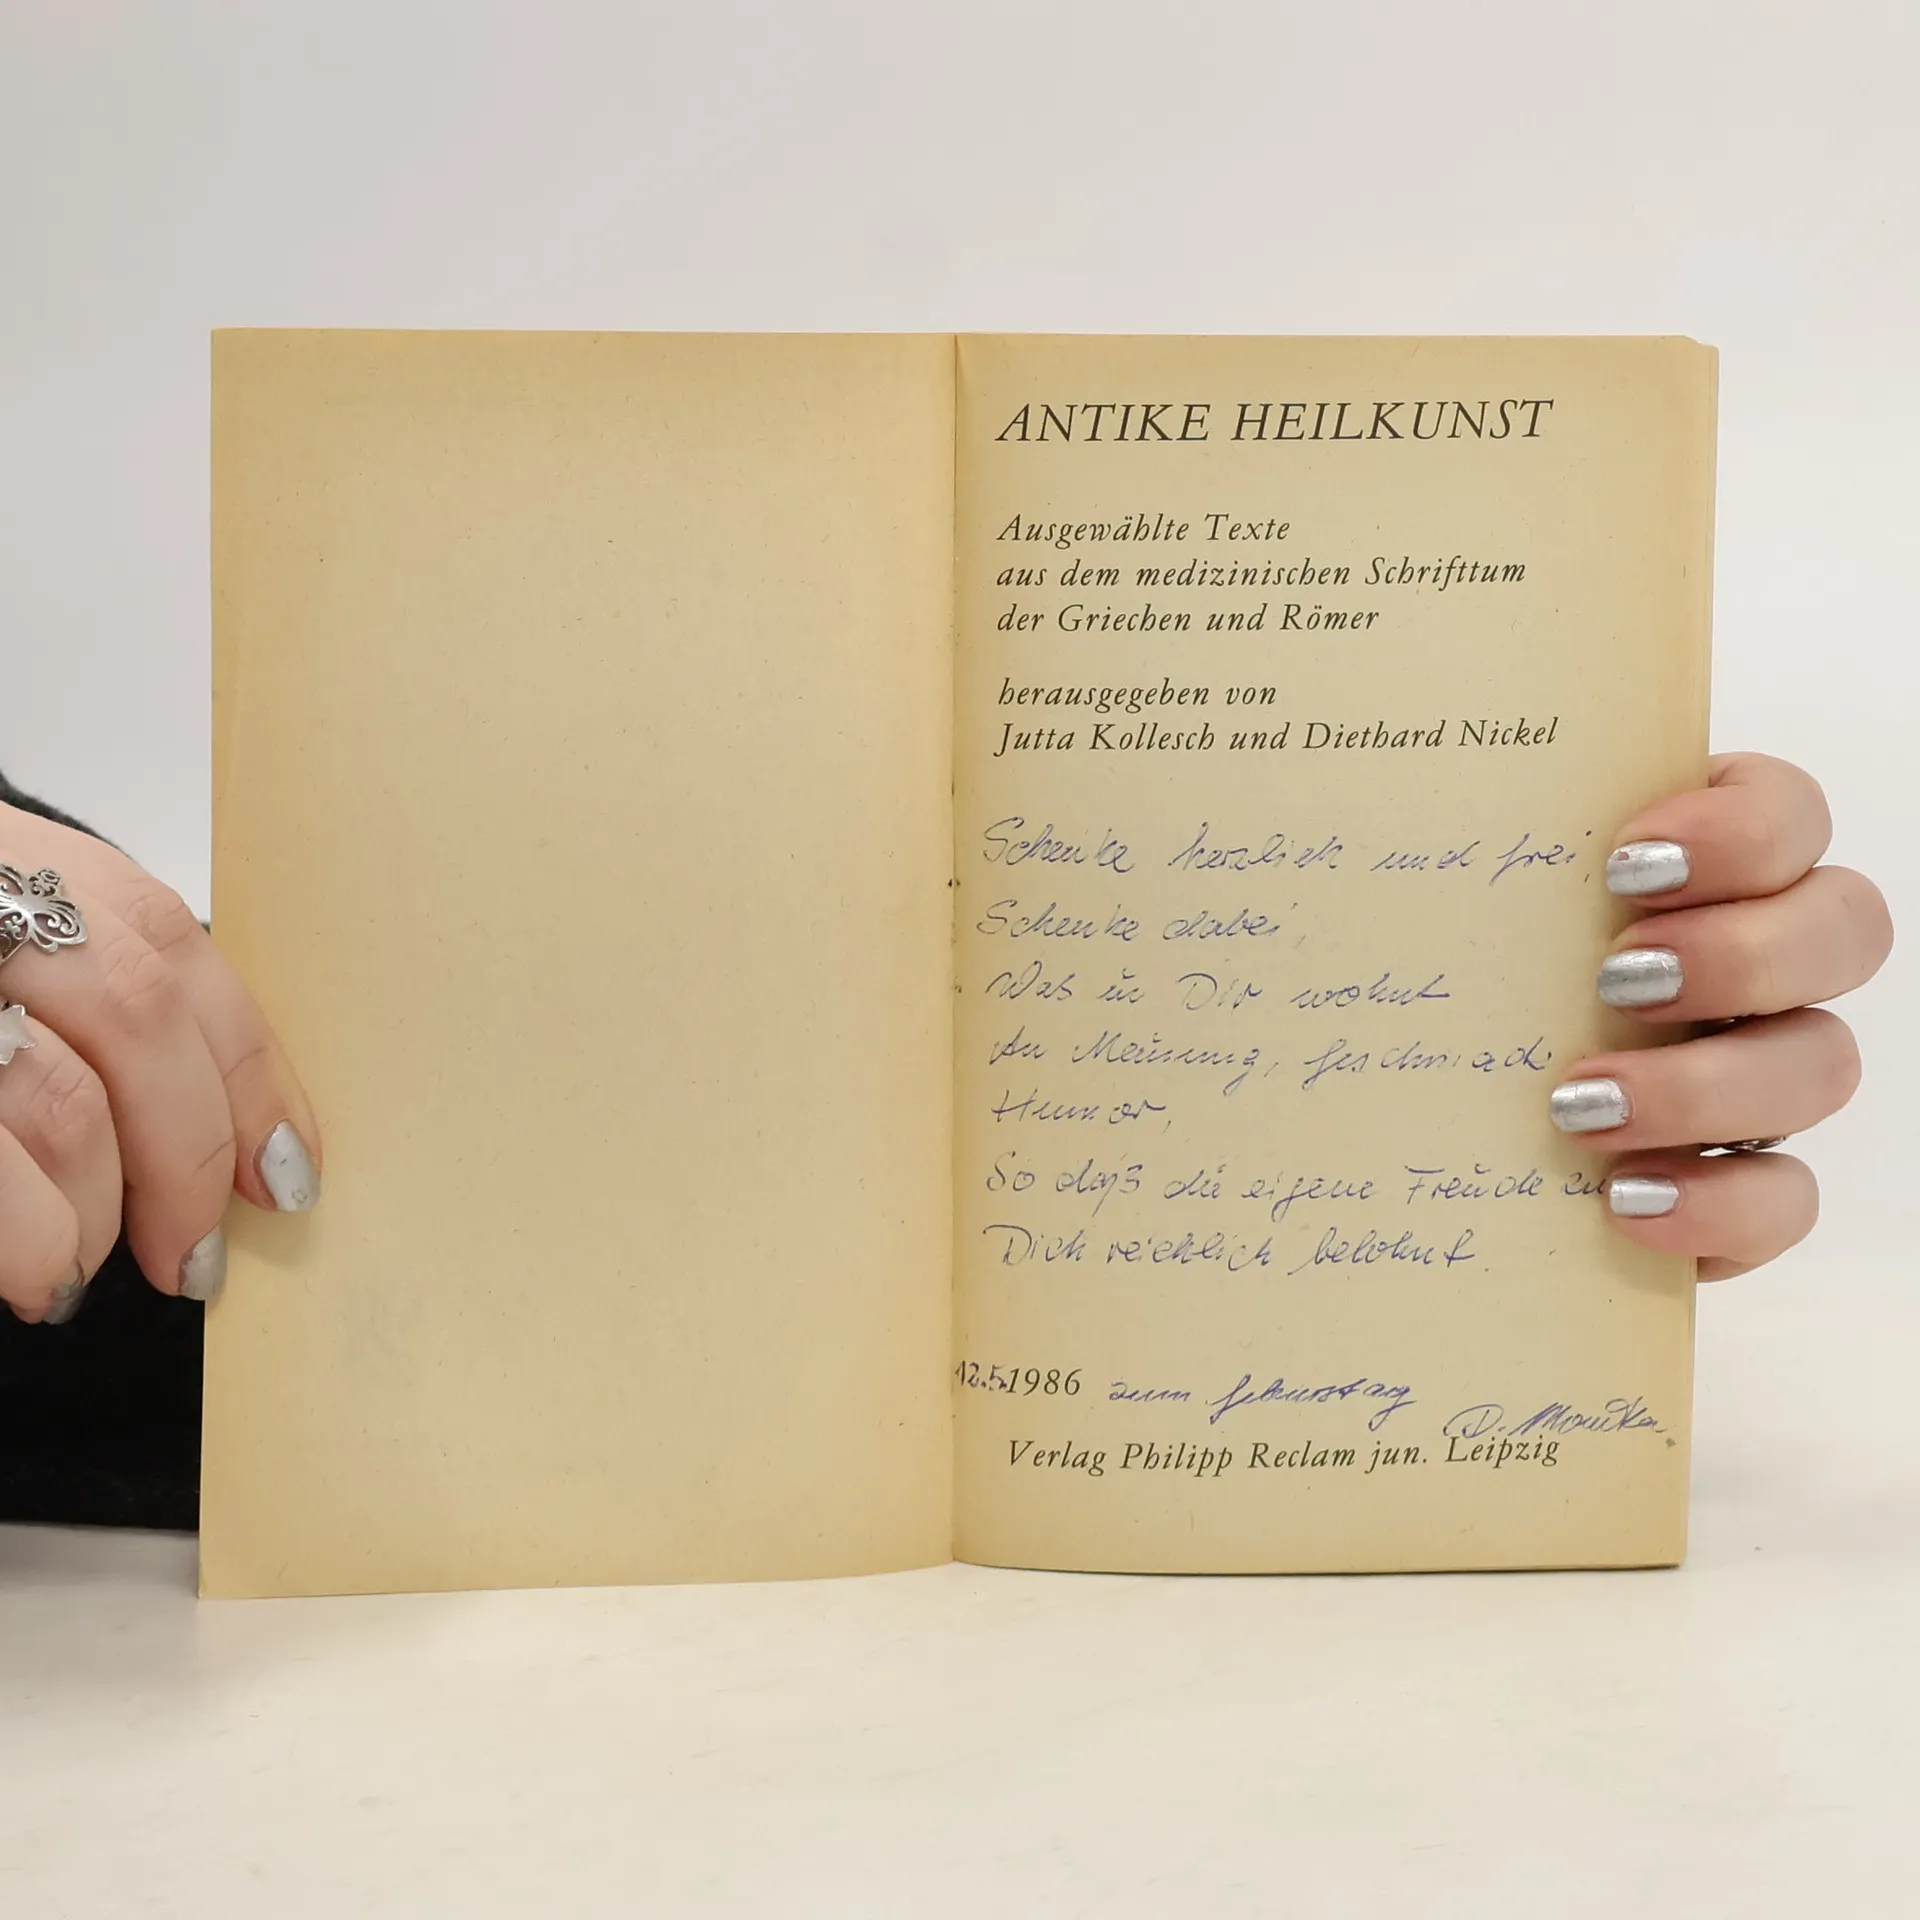 ANTIKE HEILKUNST
Ausgewählte Texte
aus dem medizinischen Schrifttum
der Griechen und Römer
herausgegeben von
Jutta Kollesch und Diethard Nickel
Schenke herzlich und frei,
Schenke dabei,
Was in Dir wohnt
An Meinung, Geschmack
Humor,
So daß die eigene Freude zu
Dich reichlich belohnt.
12.5.1986 zum Geburtstag
D. Monika
Verlag Philipp Reclam jun. Leipzig